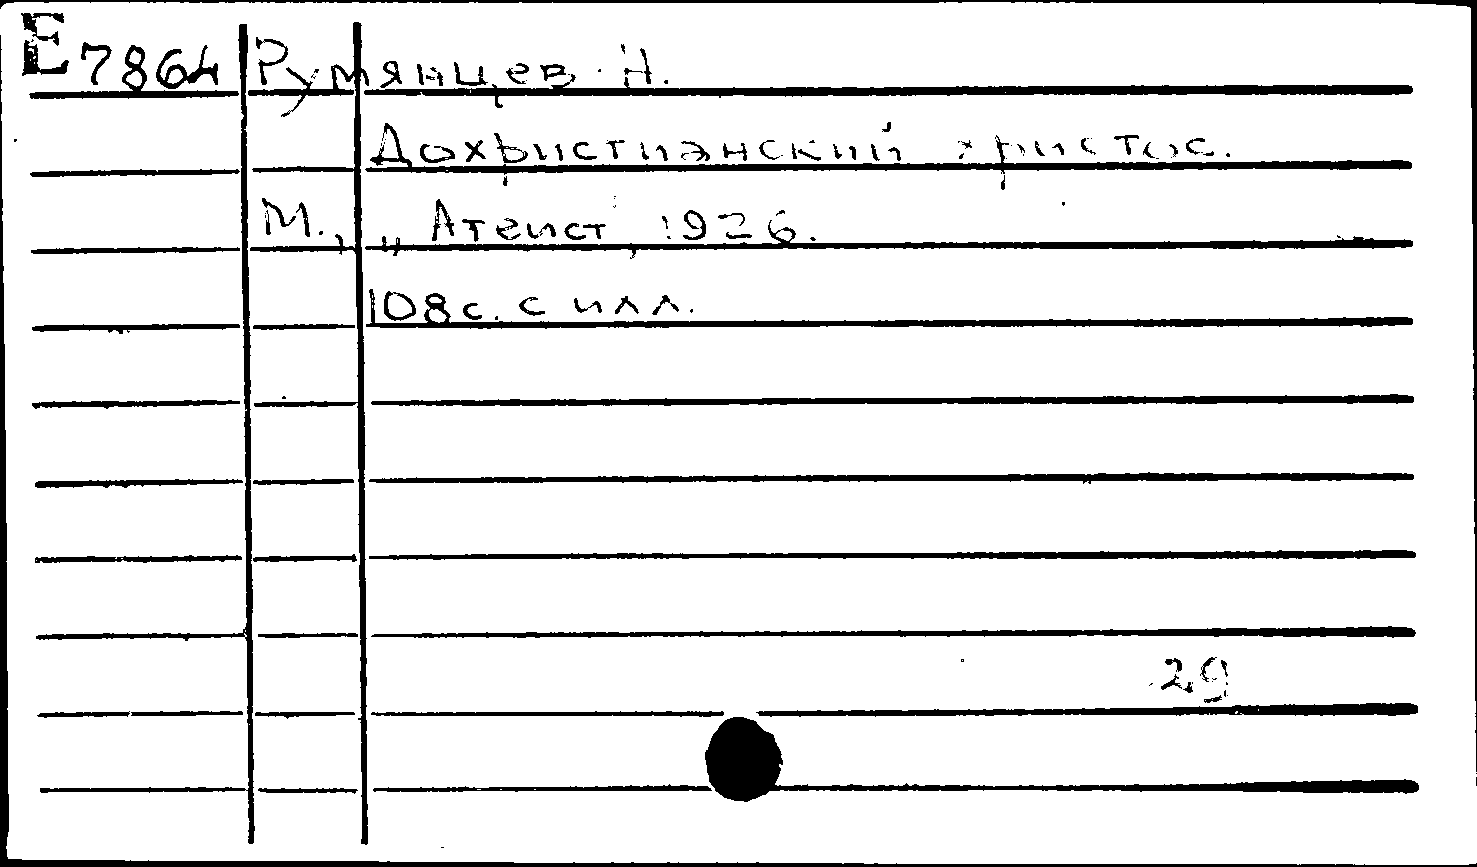 E 7864 Румянцев Н.
Дохристианский христос.
М., „Атеист, 1926.
108с. с илл.
29